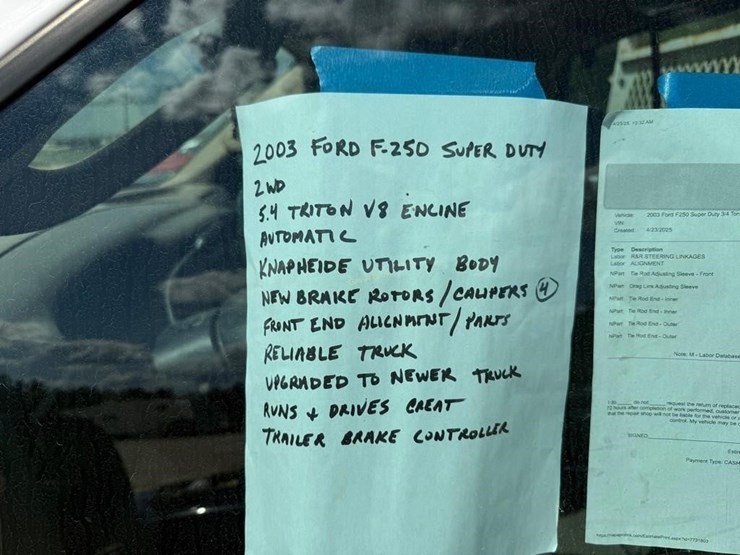 2003 FORD F-250 SUPER DUTY
2WD
5.4 TRITON V8 ENGINE
AUTOMATIC
KNAPHEIDE UTILITY BODY
NEW BRAKE ROTORS/CALIPERS 4
FRONT END ALIGNMENT/PARTS
RELIABLE TRUCK
UPGRADED TO NEWER TRUCK
RUNS & DRIVES GREAT
TRAILER BRAKE CONTROLLER
Vehicle: 2003 Ford F250 Super Duty 3/4 Ton
VIN:
Created: 4/23/2025
Type Description
Labor R&R STEERING LINKAGES
Labor ALIGNMENT
NPart Tie Rod Adjusting Sleeve - Front
NPart Drag Link Adjusting Sleeve
NPart Tie Rod End - Inner
NPart Tie Rod End - Inner
NPart Tie Rod End - Outer
NPart Tie Rod End - Outer
Note: M - Labor Database
I do do not request the return of replaced
72 hours after completion of work performed, customer
that the repair shop will not be liable for the vehicle or
control. My vehicle may be
SIGNED
Payment Type: CASH